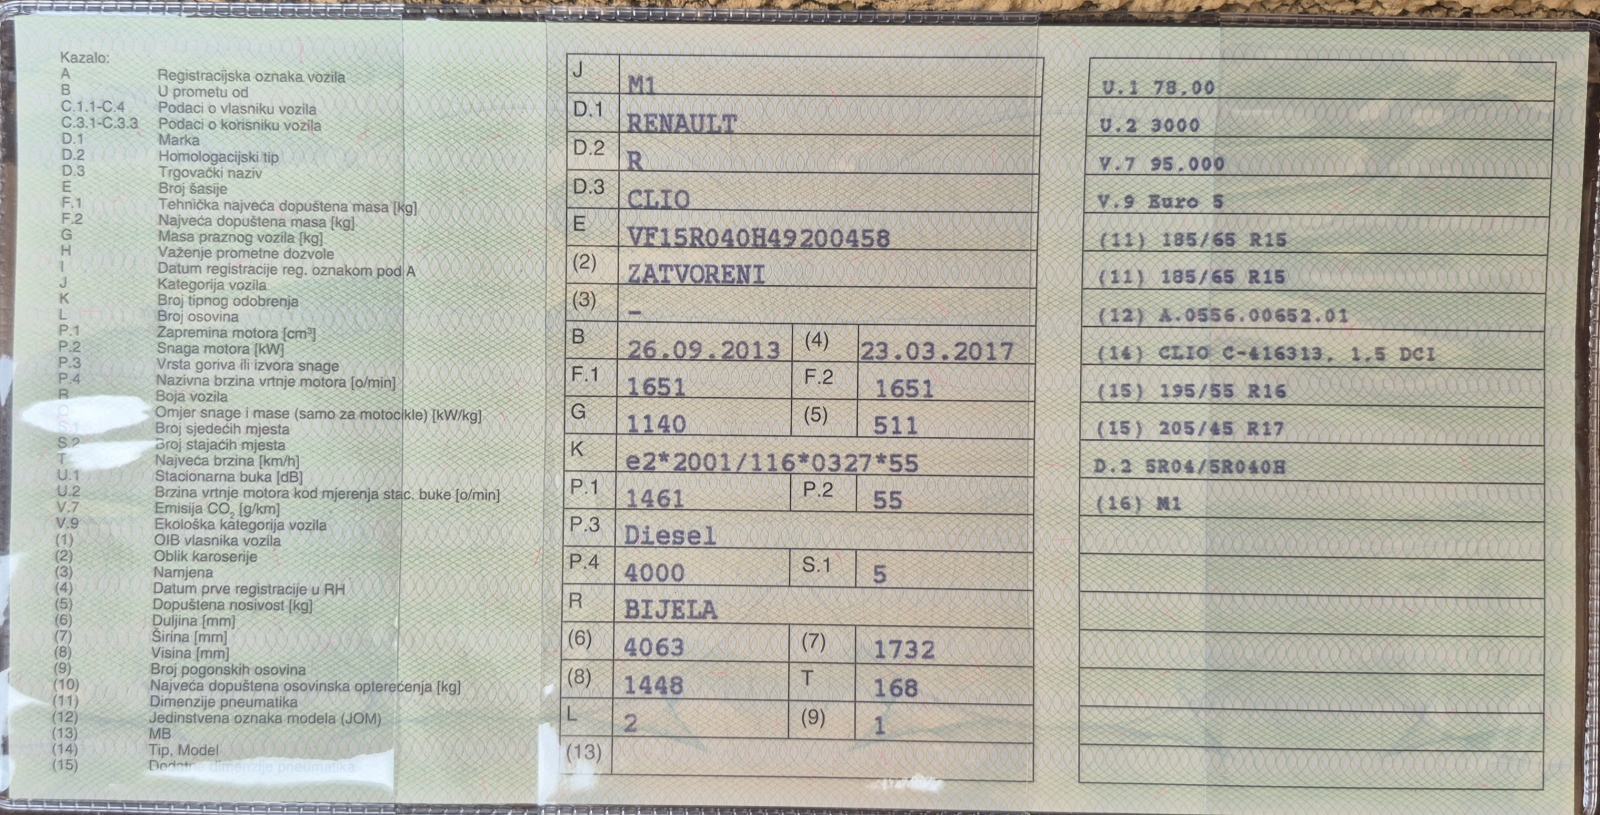 Kazalo:
A Registracijska oznaka vozila
B U prometu od
C.1.1-C.4 Podaci o vlasniku vozila
C.3.1-C.3.3 Podaci o korisniku vozila
D.1 Marka
D.2 Homologacijski tip
D.3 Trgovački naziv
E Broj šasije
F.1 Tehnička najveća dopuštena masa [kg]
F.2 Najveća dopuštena masa [kg]
G Masa praznog vozila [kg]
H Važenje prometne dozvole
I Datum registracije reg. oznakom pod A
J Kategorija vozila
K Broj tipnog odobrenja
L Broj osovina
P.1 Zapremina motora [cm³]
P.2 Snaga motora [kW]
P.3 Vrsta goriva ili izvora snage
P.4 Nazivna brzina vrtnje motora [o/min]
R Boja vozila
Omjer snage i mase (samo za motocikle) [kW/kg]
S.1 Broj sjedećih mjesta
S.2 Broj stajaćih mjesta
T Najveća brzina [km/h]
U.1 Stacionarna buka [dB]
U.2 Brzina vrtnje motora kod mjerenja stac. buke [o/min]
V.7 Emisija CO₂ [g/km]
V.9 Ekološka kategorija vozila
(1) OIB vlasnika vozila
(2) Oblik karoserije
(3) Namjena
(4) Datum prve registracije u RH
(5) Dopuštena nosivost [kg]
(6) Duljina [mm]
(7) Širina [mm]
(8) Visina [mm]
(9) Broj pogonskih osovina
(10) Najveća dopuštena osovinska opterećenja [kg]
(11) Dimenzije pneumatika
(12) Jedinstvena oznaka modela (JOM)
(13) MB
(14) Tip, Model
(15) Dodatne dimenzije pneumatika
J M1
D.1 RENAULT
D.2 R
D.3 CLIO
E VF15R040H49200458
(2) ZATVORENI
(3) –
B 26.09.2013 (4) 23.03.2017
F.1 1651 F.2 1651
G 1140 (5) 511
K e2*2001/116*0327*55
P.1 1461 P.2 55
P.3 Diesel
P.4 4000 S.1 5
R BIJELA
(6) 4063 (7) 1732
(8) 1448 T 168
L 2 (9) 1
(13)
U.1 78.00
U.2 3000
V.7 95.000
V.9 Euro 5
(11) 185/65 R15
(11) 185/65 R15
(12) A.0556.00652.01
(14) CLIO C-416313, 1,5 DCI
(15) 195/55 R16
(15) 205/45 R17
D.2 5R04/5R040H
(16) M1